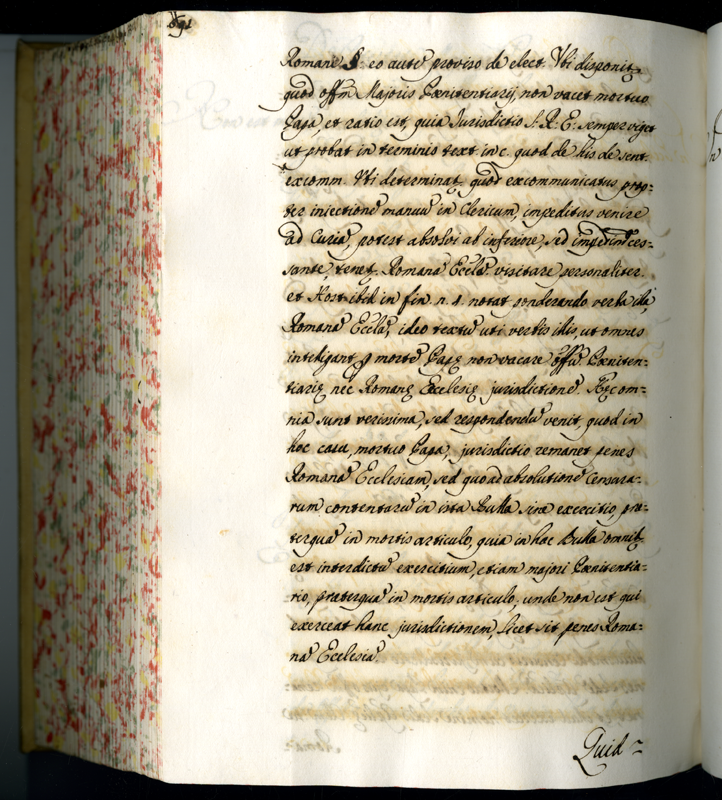 Romani §. eo autẽ proviso de elect. Vbi disponit
quod offm Majoris Pœnitentiarij, non vacet mortuo
Papa, et ratio est, quia Jurisdictio S. R. E. semper viget
ut probat in terminis text. in c. quod de his de sent.
excomm. Vbi determinat, quod excommunicatus prop-
ter iniectionẽ manuũ in Clericum, impeditus venire
ad Curiã, potest absolvi ab inferiore, sed ces-
sante, tenet. Romanã Ecclã visitare personaliter
et Host. ibid. in fin. n. 4. notat ponderando verba illa,
Romanã Ecclã, ideo textũ uti verbis illis, ut omnes
intelligant q mortuo Papę non vacare offũ Pœniten-
tiarię nec Romanę Ecclesię jurisdictionẽ. Hęc om-
nia sunt verissima, sed respondendũ venit, quod in
hoc casu, mortuo Papa, jurisdictio remanet penes
Romanã Ecclesiam, sed quo ad absolutionẽ Censura-
rum contentarũ in ista Bulla sine exercitio, prę-
terquã in mortis articulo, quia in hac Bulla omnib.
est interdictũ exercitium, etiam majori Pœnitentia-
rio, praterquã in mortis articulo, unde non est qui
exerceat hanc jurisdictionem, licet sit penes Roma-
nã Ecclesiã.
Quid